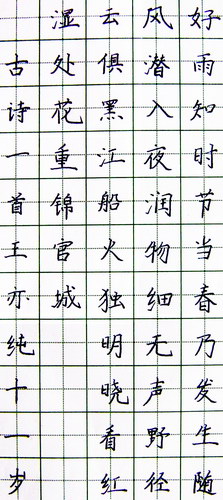 好雨知时节当春乃发生随
风潜入夜润物细无声野径
云俱黑江船火独明晓看红
湿处花重锦宫城
古诗一首王亦纯十一岁